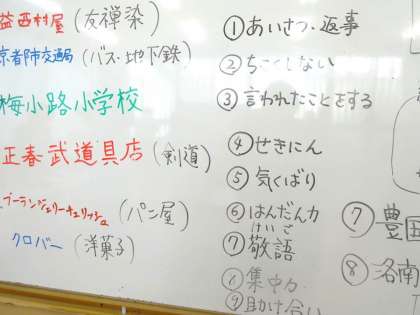 益西村屋(友禅染)
京都市交通局(バス・地下鉄)
梅小路小学校
正春武道具店(剣道)
ブーランジェリーキュリッシュ(パン屋)
クロバー(洋菓子)
①あいさつ・返事
②ちこくしない
③言われたことをする
④せきにん
⑤気くばり
⑥はんだん力
けいご
⑦敬語
⑧集中力
⑨助け合い
⑦豊田
⑧洛南